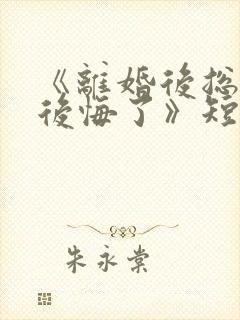 《離婚後总
後悔了》短
朱永棠